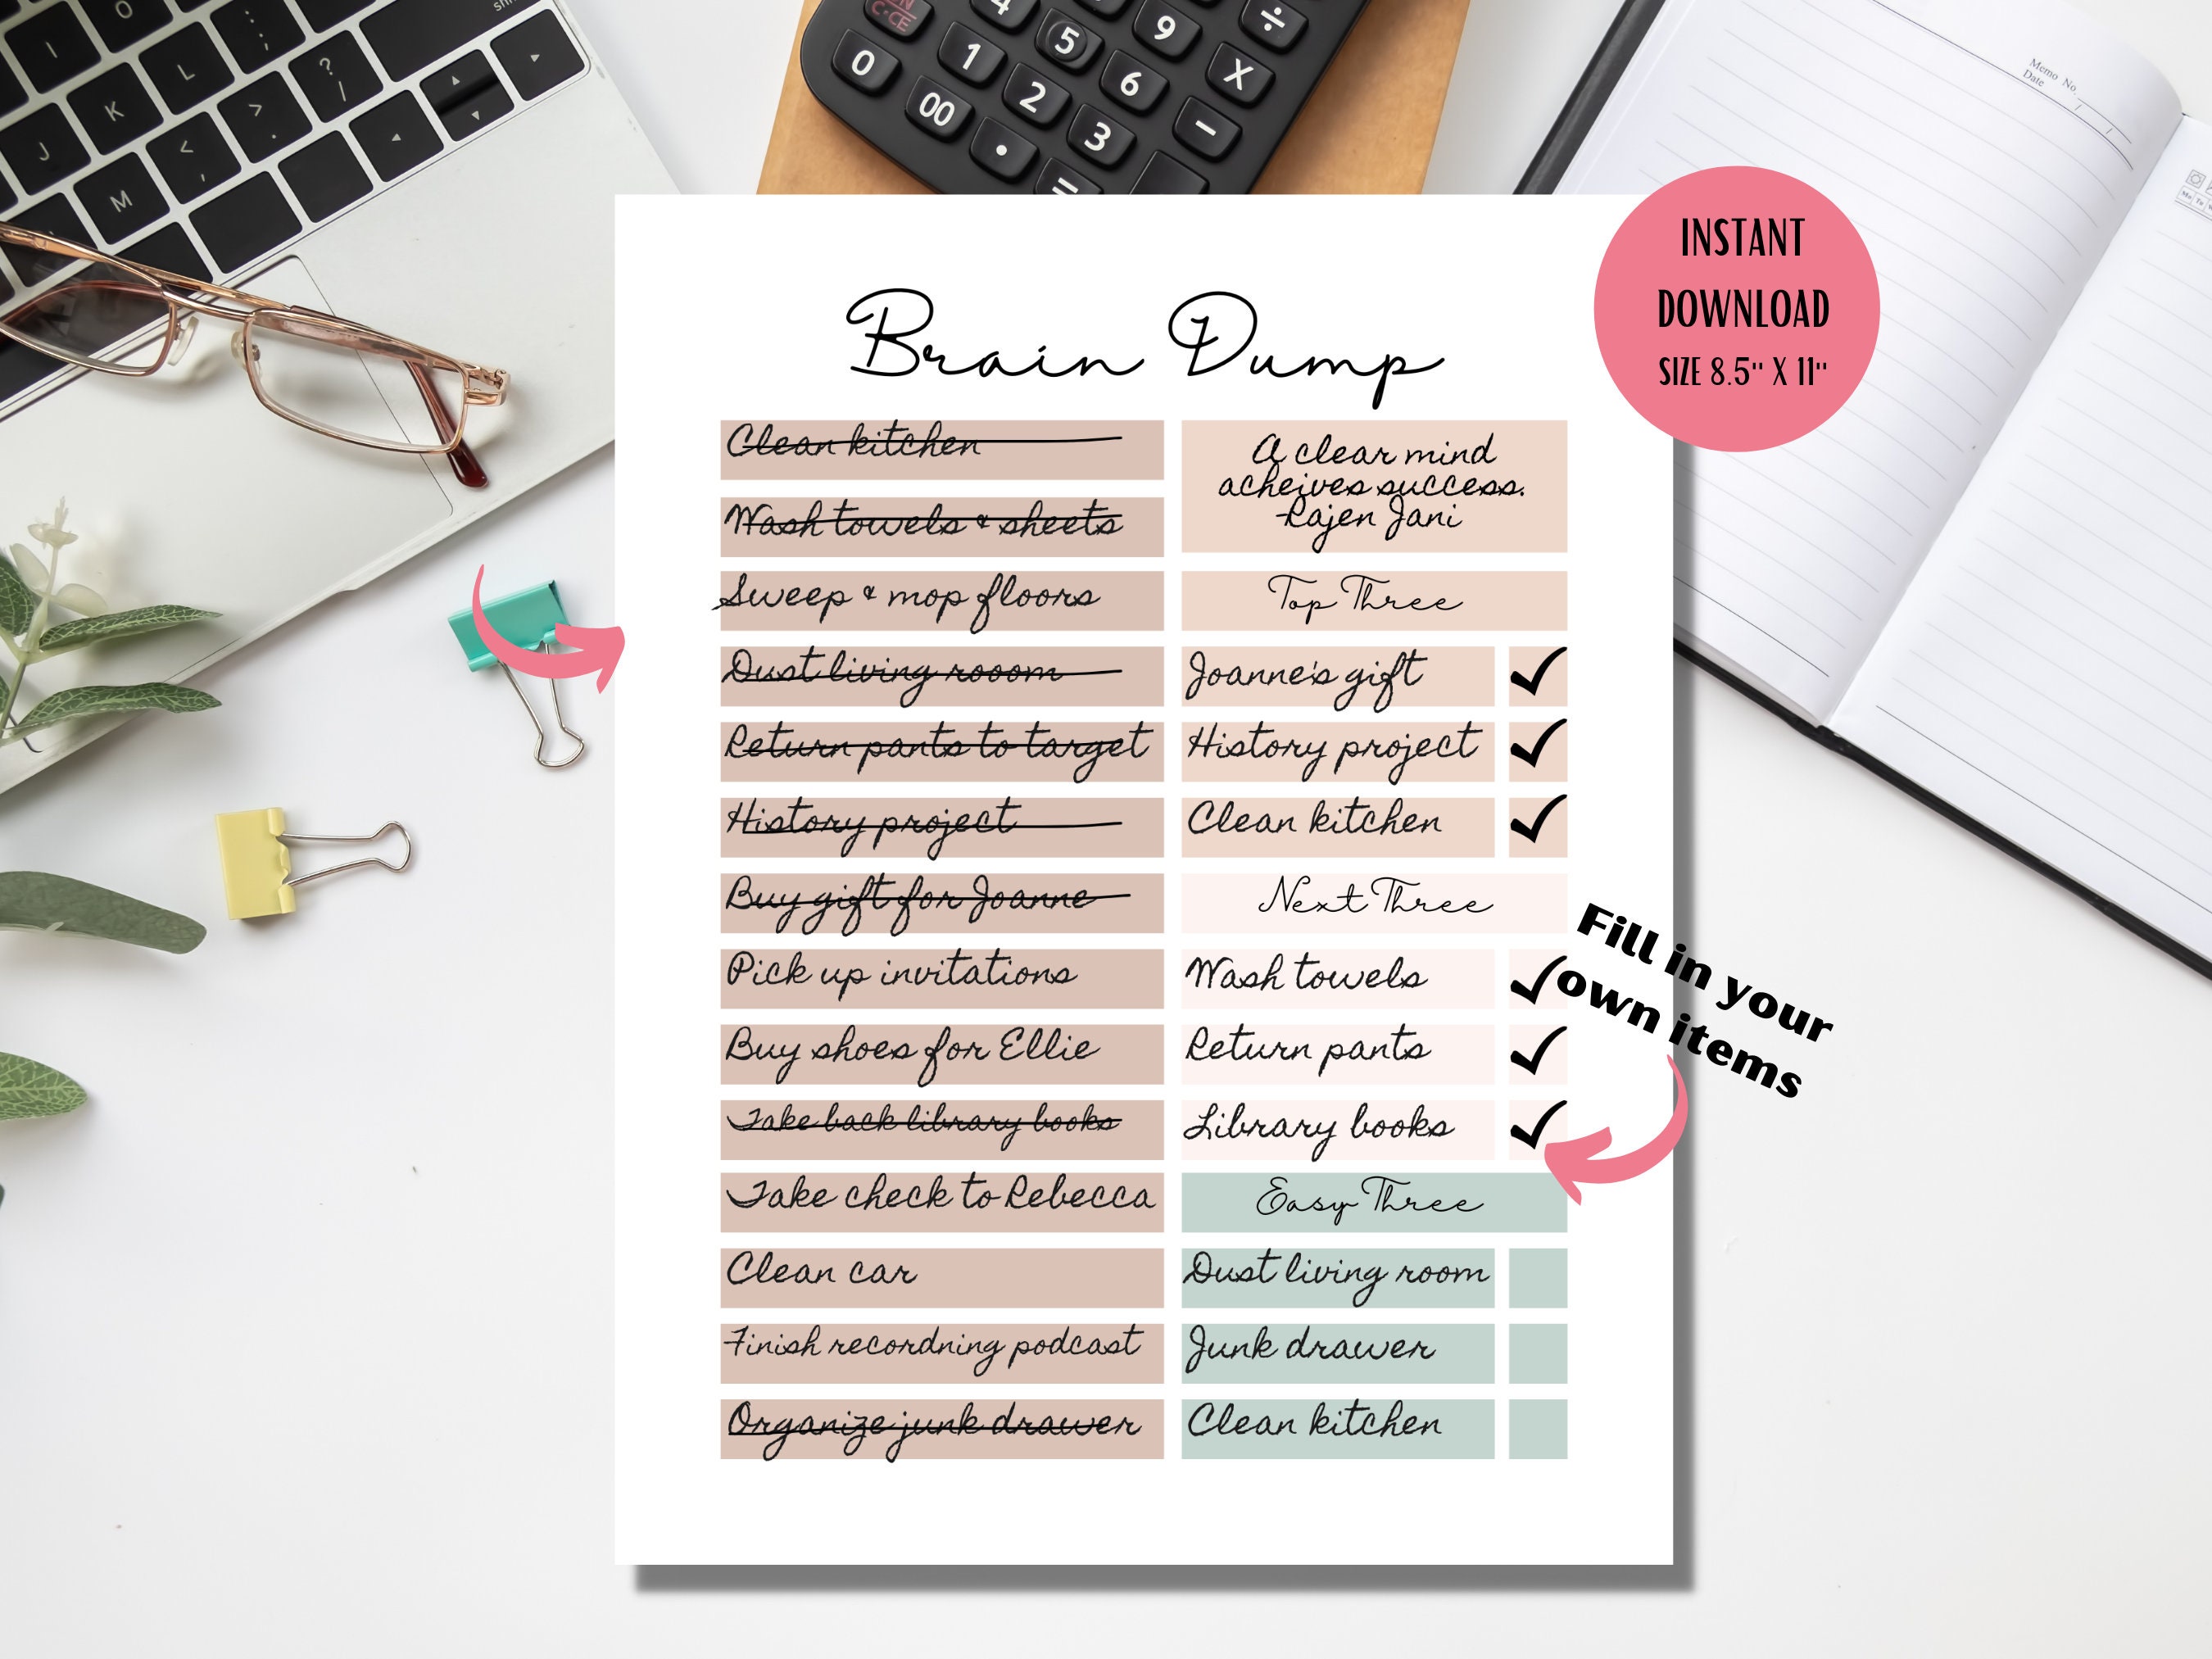 INSTANT
DOWNLOAD
SIZE 8.5" X 11"
Brain Dump
Clean kitchen
Wash towels & sheets
Sweep & mop floors
Dust living rooom
Return pants to target
History project
Buy gift for Joanne
Pick up invitations
Buy shoes for Ellie
Take back library books
Take check to Rebecca
Clean car
Finish recordning podcast
Organize junk drawer
A clear mind
acheives success.
-Rajen Jani
Top Three
Joanne's gift
History project
Clean kitchen
Next Three
Wash towels
Return pants
Library books
Easy Three
Dust living room
Junk drawer
Clean kitchen
Fill in your
own items
Memo No.
Date / /
O
I
L
K
J
M
?
/
>
.
<
,
C·CE
4
5
9
÷
0
1
6
X
00
2
3
-
.
=